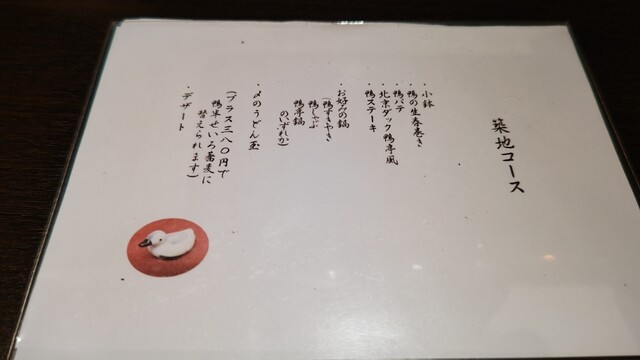 築地コース
・小鉢
・鴨の生春巻き
・鴨パテ
・北京ダック鴨亭風
・鴨ステーキ
・お好みの鍋
（鴨すきやき
鴨しゃぶ
鴨亭鍋
のいずれか）
・〆のうどん玉
（プラス三八〇円で
鴨せいろ蕎麦に
替えられます）
・デザート